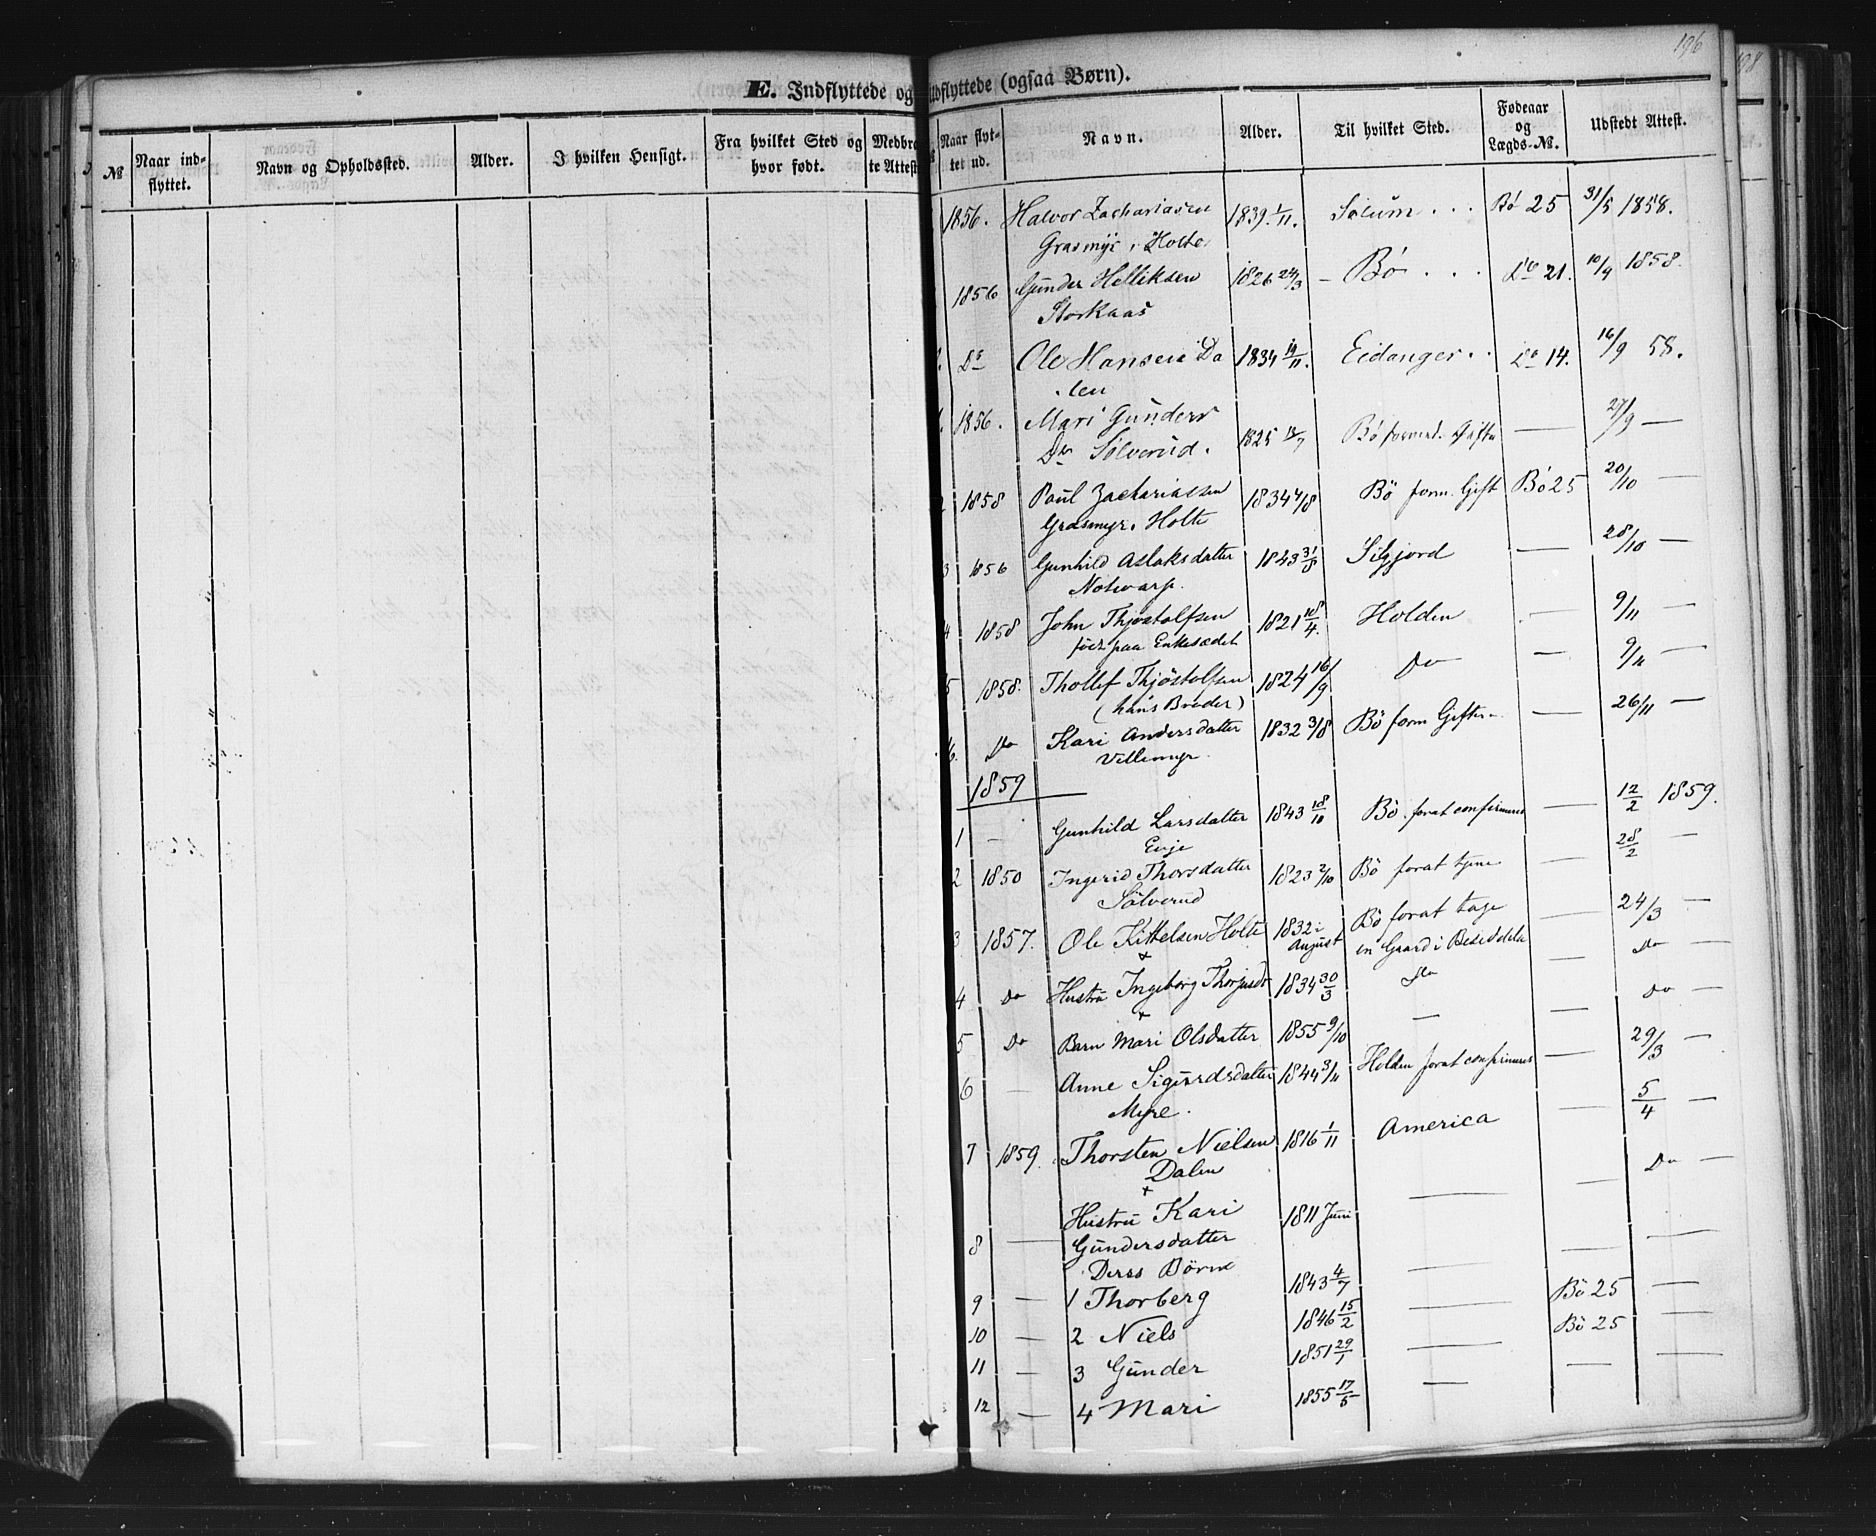 196
198
E. Indflyttede og Udflyttede (ogsaa Børn).
№ | Naar indflyttet. | Navn og Opholdssted. | Alder. | I hvilken Hensigt. | Fra hvilket Sted og hvor født. | Medbragte Attest
Naar flyttet ud. | Navn. | Alder. | Til hvilket Sted. | Fødeaar og Lægds-№. | Udstedt Attest.
1856. Halvor Zachariasen 1839. 1/11. Solum . . . Bö 25 31/5 1858.
Grasmyr i Holte
1856 Gunder Helliksen 1826 24/3 — Bö . . . Do 21. 10/9 1858.
Storkaas
Do Ole Hansen Da 1834 19/11. Eidanger . . Do 14. 16/9 58.
len
1856. Mari Gunders 1825 13/7 Bö formed. Gifte — 27/9 —
Dr Sölverud.
2 1858 Paul Zachariassen 1834 4/8 Bö form. Gift Bö 25 20/10 —
Grasmyr. Holte
3 1856 Gunhild Aslaksdatter 1843 31/8 Silgjord — 28/10 —
Notevarp.
4 1858 John Thjostolfsen 1821 18/4. Holden — 9/11 —
født paa Enkesædet
5 1858. Thollef Thjöstolfsen 1824 16/9 Do — 9/11 —
(hans Broder)
6. Do Kari Andersdatter 1832 3/8 Bö form Gifter — 26/11 —
Vellemyr.
1859
1 — Gunhild Larsdatter 1843 18/10 Bö. forat confirmeres — 12/2 1859.
Evje
2 1850 Ingerid Thorsdatter 1823 2/10 Bö forat tjene — 28/2 —
Sölverud
3 1857. Ole Kittelsen Holte 1832 i August Bö forat tage — 24/3 —
en Gaard i Besiddelse
4 Do Hustru Ingeborg Thorjusdr 1834 30/3 Do — Do —
5 Do Barn Mari Olsdatter 1855 9/10 — — Do —
6 — Anne Sigurdsdatter 1844 3/11 Holden forat confirmeres — 29/3 —
Myre.
7 1859. Thorsten Nielsen 1816 1/11 America — 5/4 —
Dalen
Hustru Kari 1811 Juni — — Do —
8 — Gundersdatter
Deres Börn
9 — 1 Thorberg 1843 4/7 — — —
10 — 2 Niels 1846 15/2 — Bö 25 —
11 — 3 Gunder 1851 29/1 — Bö 25 —
12 — 4 Mari 1855 17/5 — — —